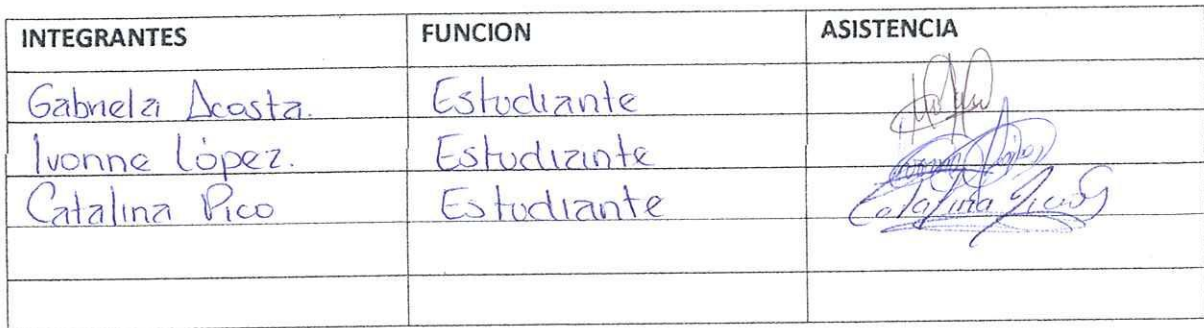 INTEGRANTES FUNCION ASISTENCIA
Gabriela Acosta. Estudiante
Ivonne López. Estudiante
Catalina Pico Estudiante Catalina Pico